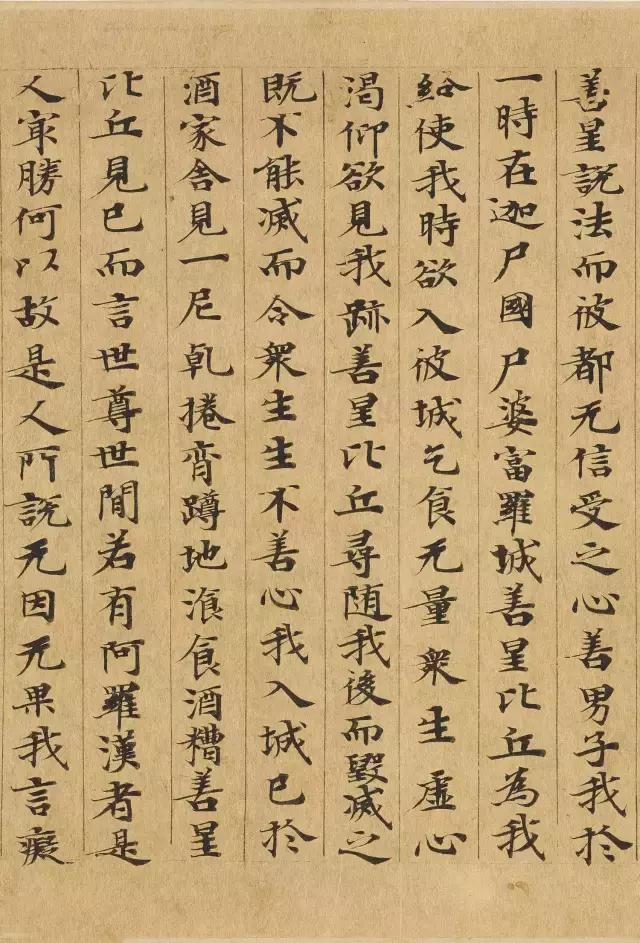 善星說法而彼都无信受之心善男子我於
一時在迦尸國尸婆富羅城善星比丘為我
給使我時欲入彼城乞食无量衆生虛心
渴仰欲見我跡善星比丘尋随我後而毀滅之
既不能滅而令衆生生不善心我入城已於
酒家舍見一尼乹捲脊蹲地湌食酒糟善星
比丘見已而言世尊世閒若有阿羅漢者是
人冣勝何以故是人所說无因无果我言癡